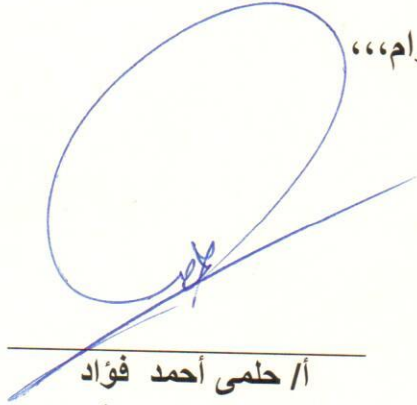 أ/ حلمى أحمد فؤاد